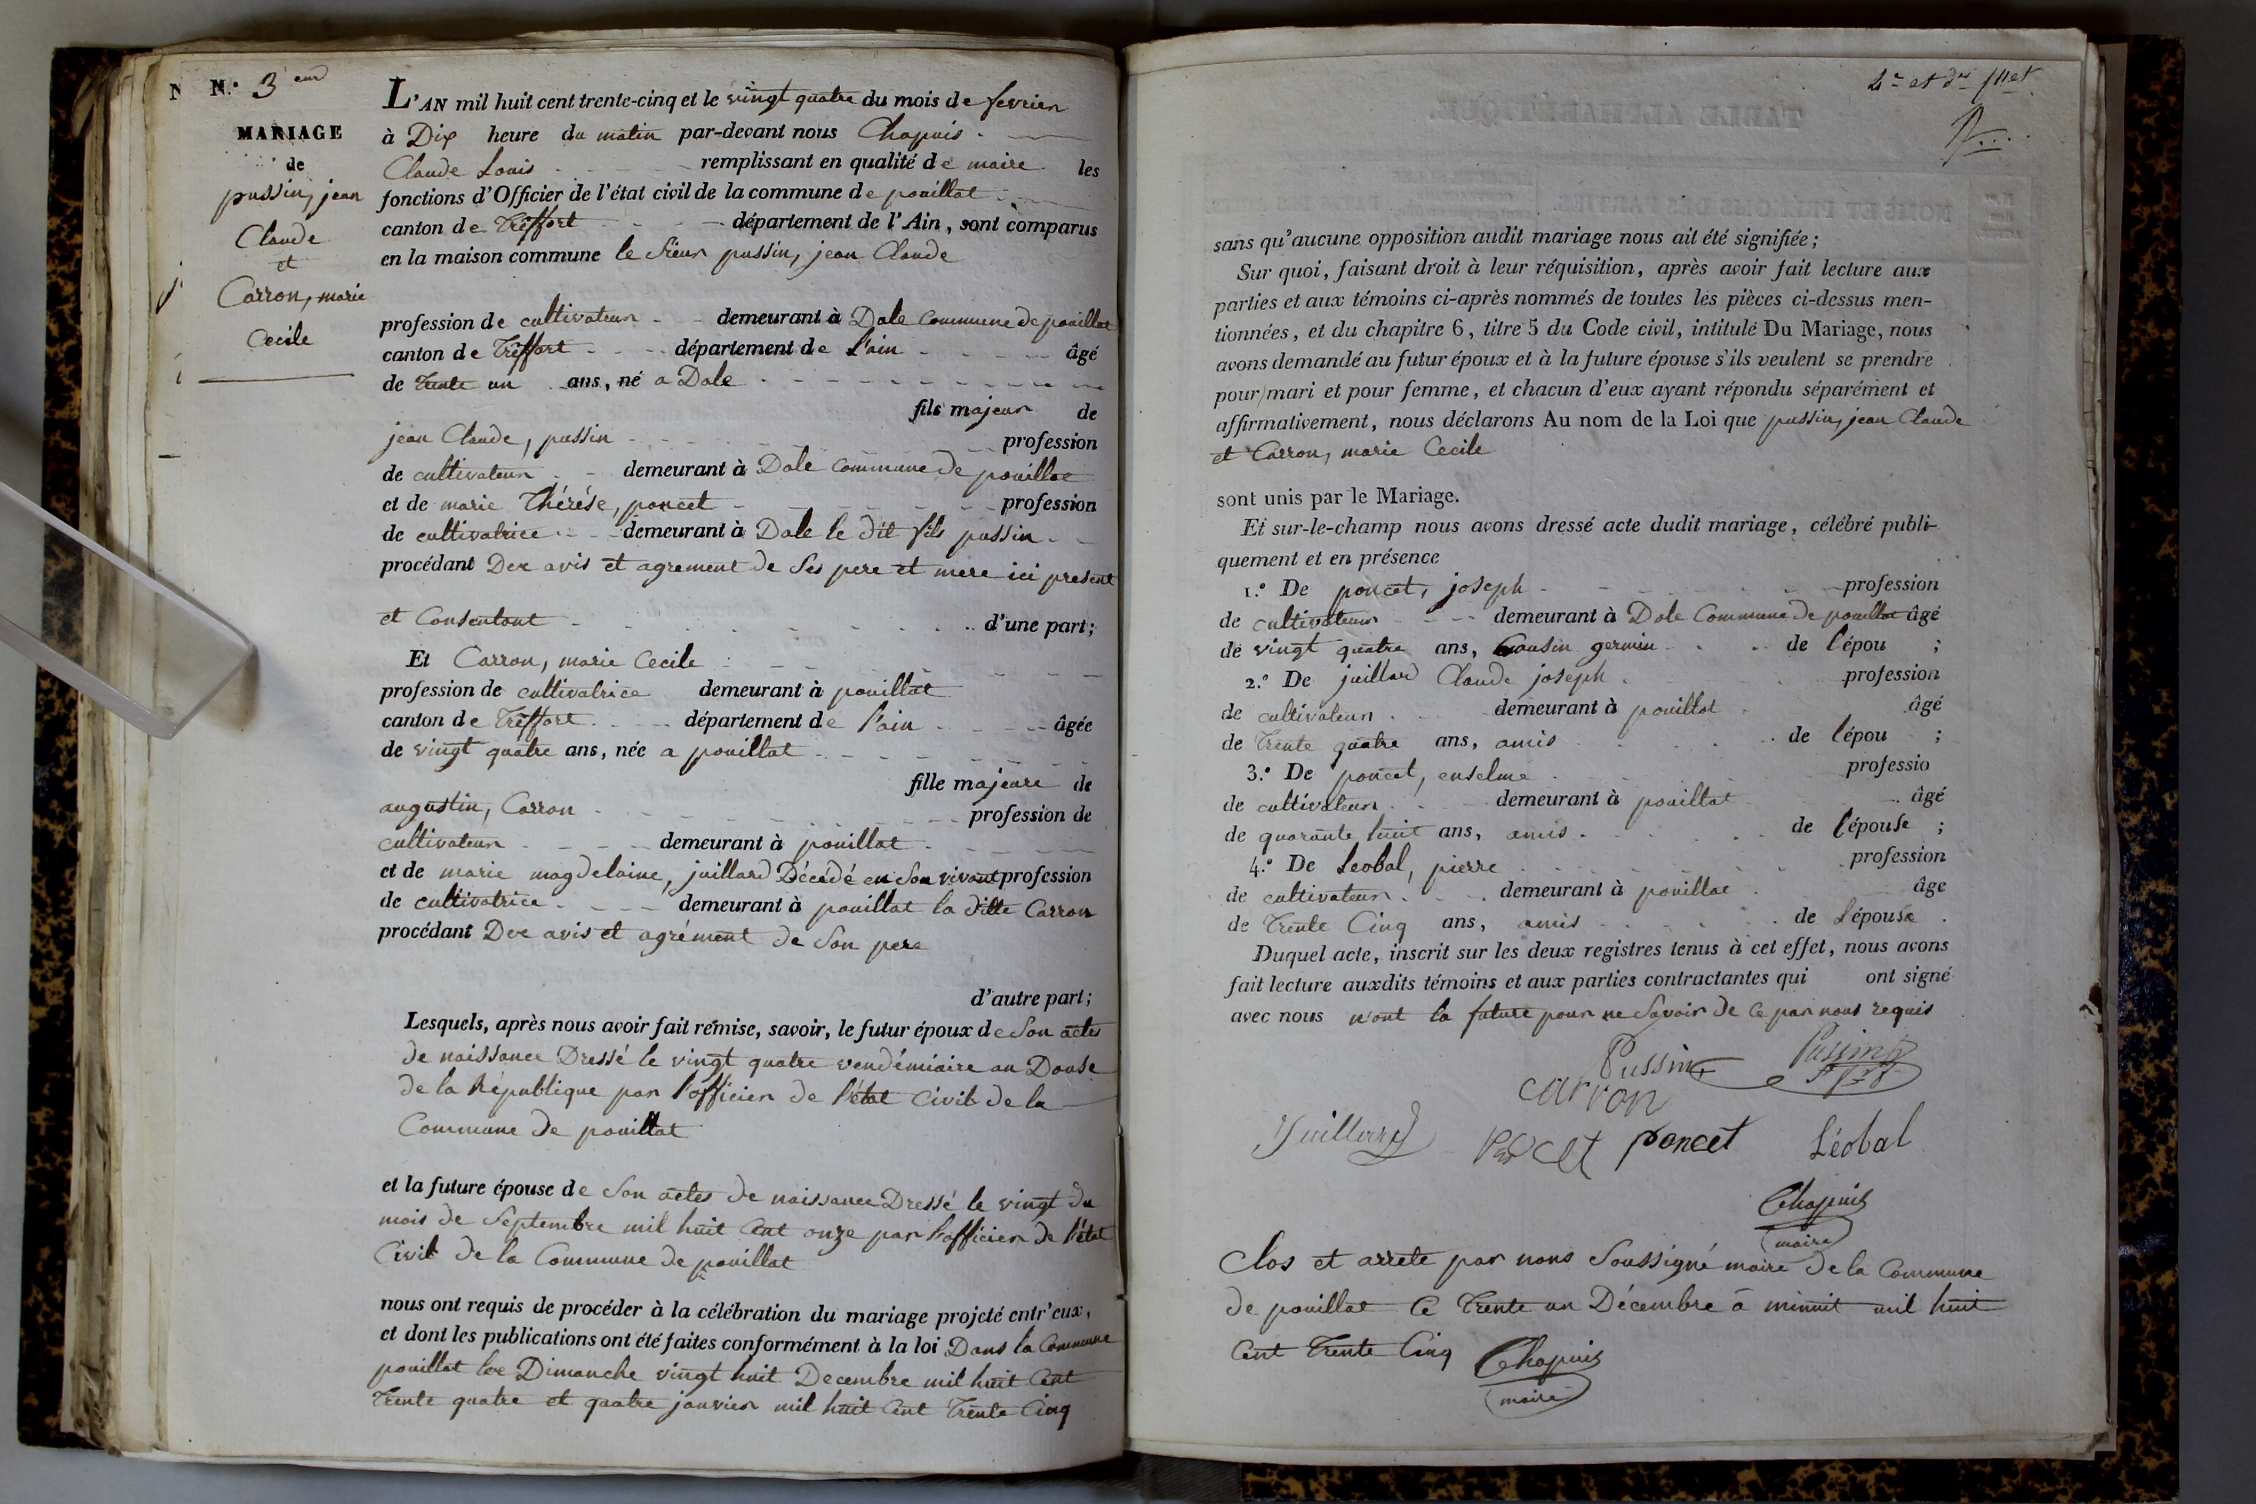 N.° 3 eme
MARIAGE
de
pussin, jean
Claude
et
Carron, marie
Cecile
L'AN mil huit cent trente-cinq et le vingt quatre du mois de fevrier
à Dix heure du matin par-devant nous Chapuis
Claude Louis remplissant en qualité de maire les
fonctions d'Officier de l'état civil de la commune de pouillat
canton de Treffort département de l'Ain, sont comparus
en la maison commune le Sieur pussin, jean Claude
profession de cultivateur demeurant à Dale Commune de pouillat
canton de Treffort département de l'ain âgé
de trente un ans, né a Dale
fils majeur de
jean Claude, pussin profession
de cultivateur demeurant à Dale Commune de pouillat
et de marie Thérése, poncet profession
de cultivatrice demeurant à Dale le dit fils pussin
procédant Dex avis et agrement de Ses pere et mere ici present
et Consentant d'une part;
Et Carron, marie Cecile
profession de cultivatrice demeurant à pouillat
canton de Treffort département de l'ain âgée
de vingt quatre ans, née a pouillat
fille majeure de
augustin, Carron profession de
cultivateur demeurant à pouillat
et de marie magdelaine, juillard Décédé en Son vivant profession
de cultivatrice demeurant à pouillat la ditte Carron
procédant Dex avis et agrément de Son pere
d'autre part;
Lesquels, après nous avoir fait remise, savoir, le futur époux de Son actes
de naissance Dressé le vingt quatre vendémiaire an Douse
de la République par l'officier de l'état Civil de la
Commune de pouillat
et la future épouse de Son actes de naissance Dressé le vingt du
mois de Septembre mil huit Cent onze par l'officier de l'état
Civil de la Commune de pouillat
nous ont requis de procéder à la célébration du mariage projeté entr'eux,
et dont les publications ont été faites conformément à la loi Dans la Commune
pouillat les Dimanche vingt huit Decembre mil huit Cent
Trente quatre et quatre janvier mil huit Cent Trente Cinq
sans qu'aucune opposition audit mariage nous ait été signifiée;
Sur quoi, faisant droit à leur réquisition, après avoir fait lecture aux
parties et aux témoins ci-après nommés de toutes les pièces ci-dessus men-
tionnées, et du chapitre 6, titre 5 du Code civil, intitulé Du Mariage, nous
avons demandé au futur époux et à la future épouse s'ils veulent se prendre
pour mari et pour femme, et chacun d'eux ayant répondu séparément et
affirmativement, nous déclarons Au nom de la Loi que pussin, jean Claude
et Carron, marie Cecile
sont unis par le Mariage.
Et sur-le-champ nous avons dressé acte dudit mariage, célébré publi-
quement et en présence
1.° De poncet, joseph profession
de cultivateur demeurant à Dale Commune de pouillat âgé
de vingt quatre ans, Cousin germin de l'épou ;
2.° De juillard Claude joseph profession
de cultivateur demeurant à pouillat âgé
de Trente quatre ans, amis de l'épou ;
3.° De poncet, enselme professio
de cultivateur demeurant à pouillat âgé
de quarante huit ans, amis de l'épouse ;
4.° De Leobal, pierre profession
de cultivateur demeurant à pouillat âge
de Trente Cinq ans, amis de l'épouse .
Duquel acte, inscrit sur les deux registres tenus à cet effet, nous avons
fait lecture auxdits témoins et aux parties contractantes qui ont signé
avec nous n'ont la future pour ne Savoir de Ce par nous requis
Pussin Pussin
carron
Juillard Poncet poncet Léobal
Chapuis
maire
Clos et arrete par nous Soussigné maire de la Commune
de pouillat Ce Trente un Décembre a minuit mil huit
Cent Trente Cinq Chapuis
maire